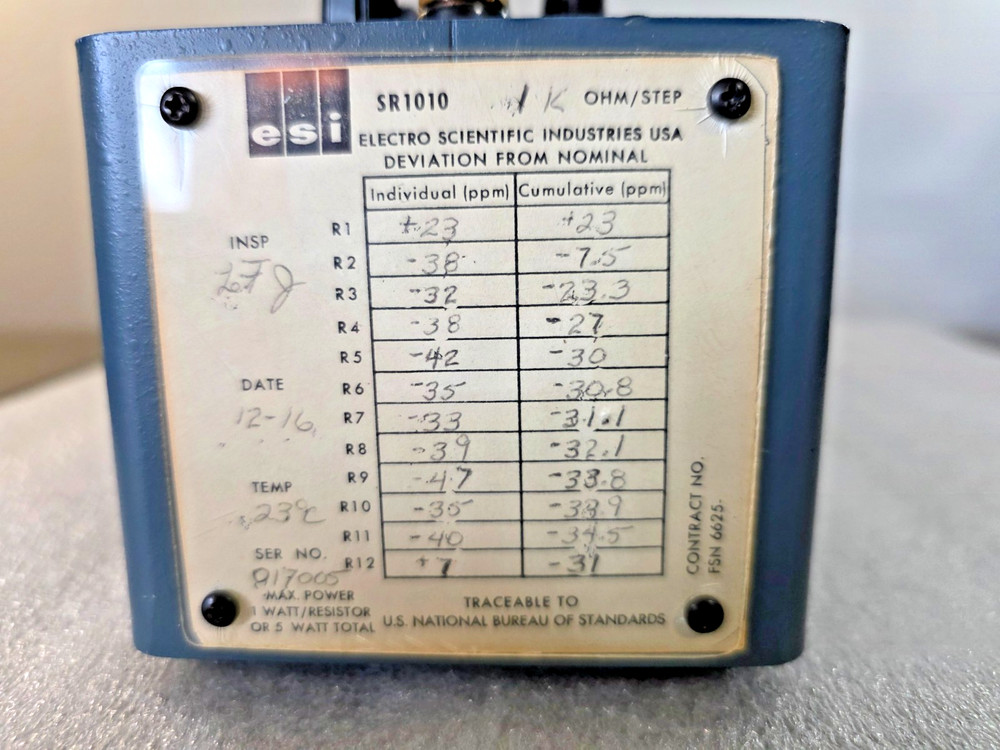 esi
SR1010 1K OHM/STEP
ELECTRO SCIENTIFIC INDUSTRIES USA
DEVIATION FROM NOMINAL
Individual (ppm) Cumulative (ppm)
R1 +23 +23
R2 -38 -7.5
R3 -32 -23.3
R4 -38 -27
R5 -42 -30
R6 -35 -30.8
R7 -33 -31.1
R8 -39 -32.1
R9 -47 -33.8
R10 -35
R11 -40 -34.5
R12 +7 -31
INSP
DATE
12-16
TEMP
23°C
SER NO.
MAX. POWER
1 WATT/RESISTOR
OR 5 WATT TOTAL
TRACEABLE TO
U.S. NATIONAL BUREAU OF STANDARDS
CONTRACT NO.
FSN 6625.